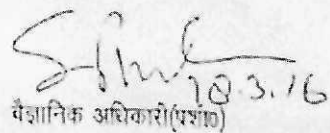 18.3.16
वैज्ञानिक अधिकारी(प्रशा0)